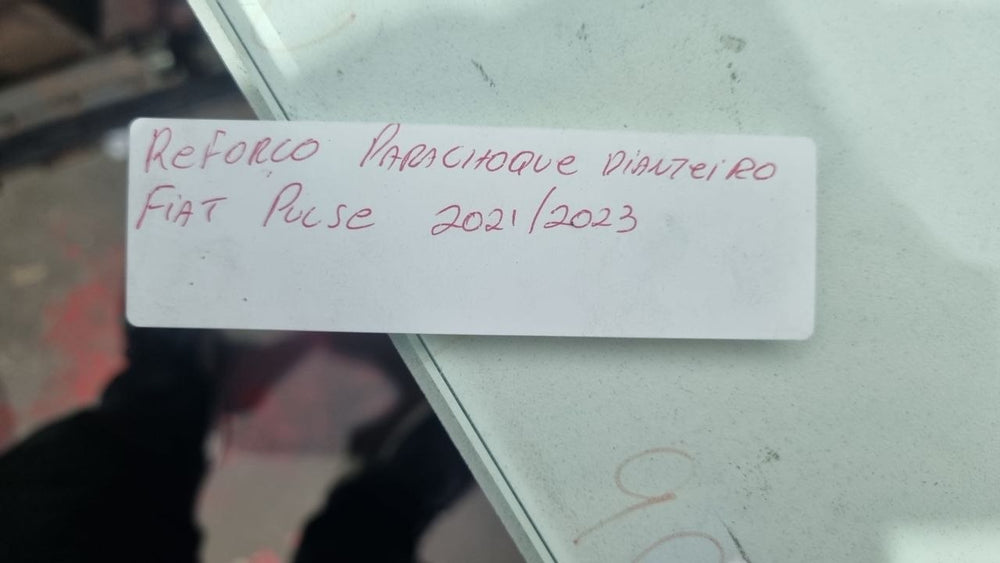 Reforço Parachoque Dianteiro
Fiat Pulse 2021/2023